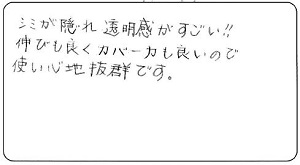 シミが隠れ透明感がすごい!!
伸びも良くカバー力も良いので
使い心地抜群です。